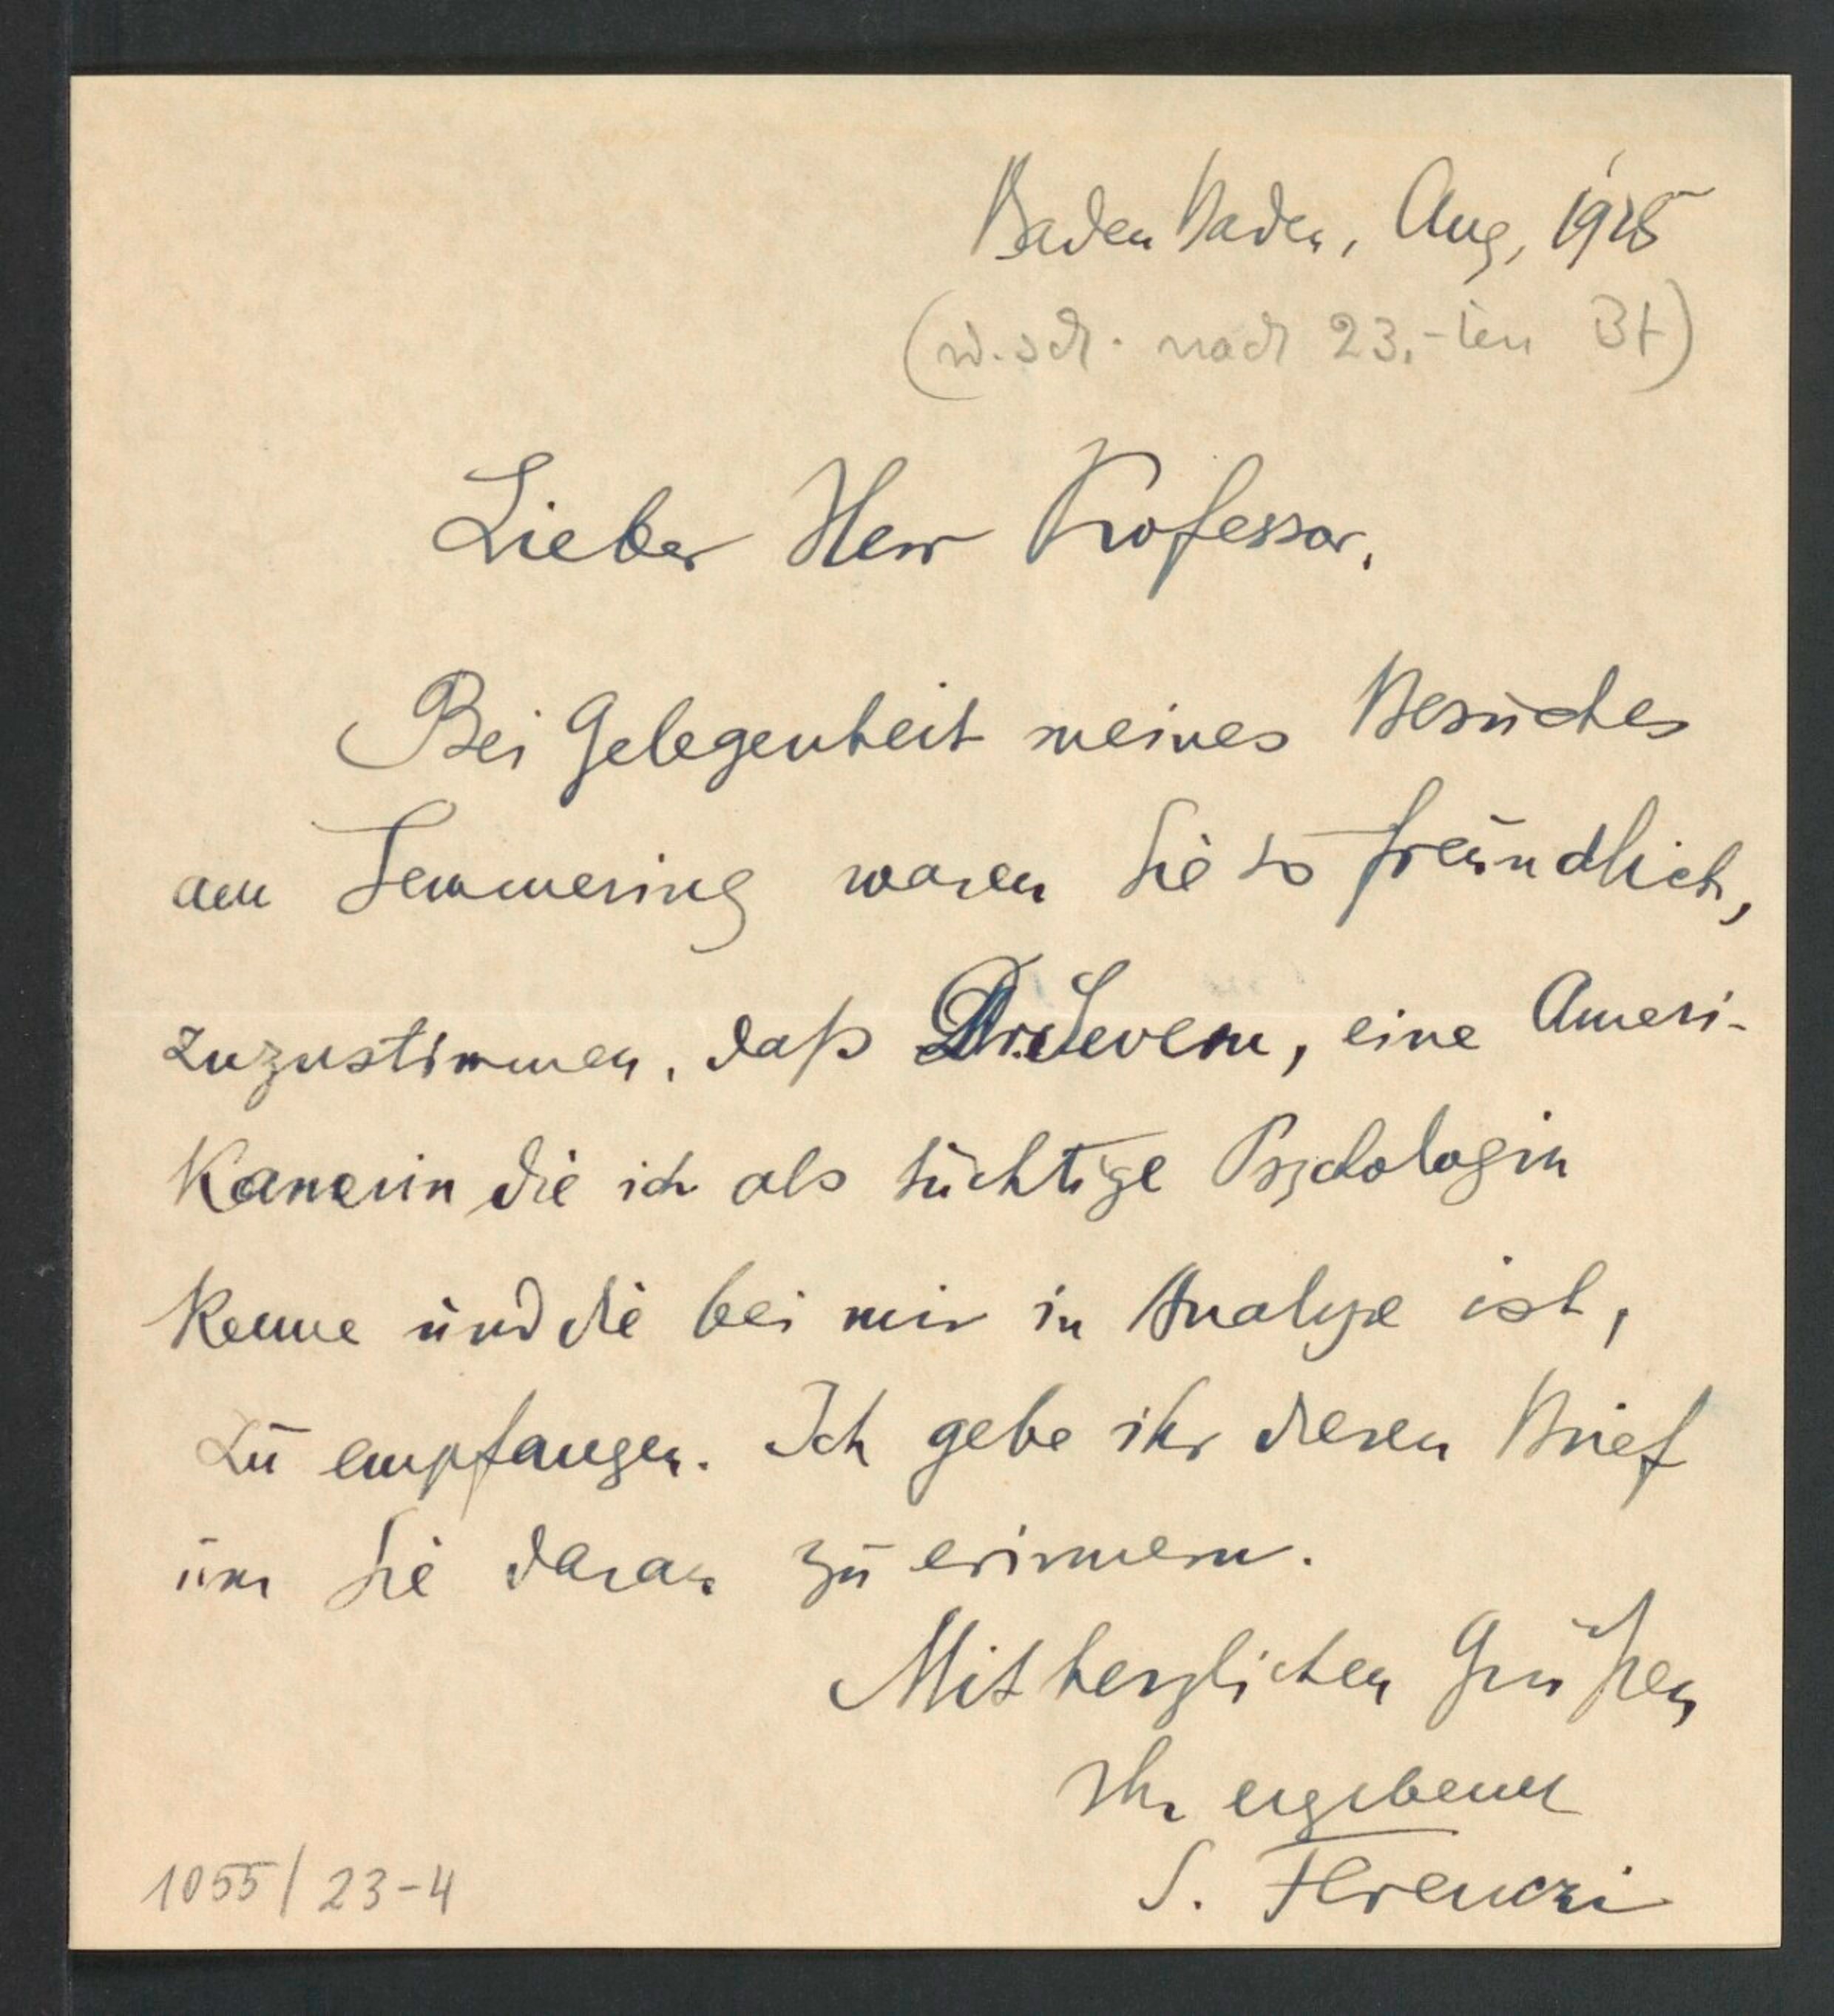 Baden Baden, Aug, 1925
(w.sch. nach 23.-ten Bf)
Lieber Herr Professor,
Bei Gelegenheit meines Besuches
am Semmering waren Sie so freundlich,
zuzustimmen, daß Dr. Severn, eine Ameri-
kanerin die ich als tüchtige Psychologin
kenne und die bei mir in Analyse ist,
zu empfangen. Ich gebe ihr diesen Brief
um Sie daran zu erinnern.
Mit herzlichen Grüßen
Ihr ergebener
S. Ferenczi
1055/23-4